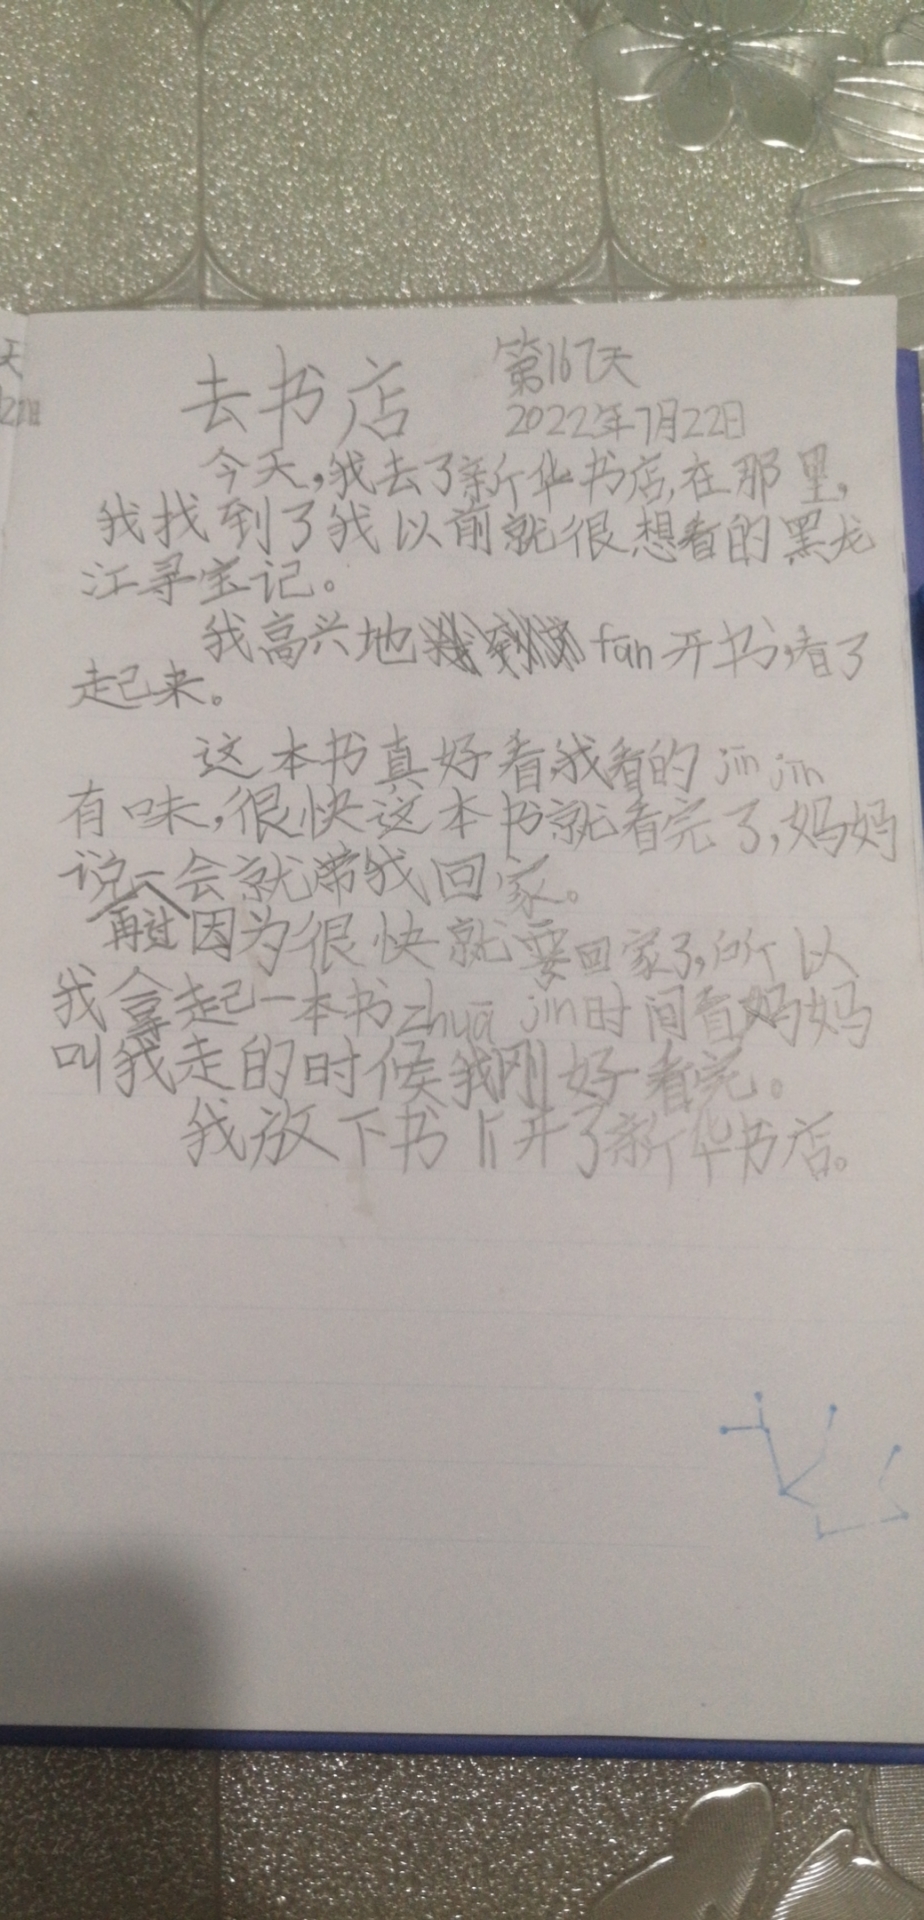 去书店 第167天
2022年7月22日
今天,我去了新华书店,在那里,
我找到了我以前就很想看的黑龙
江寻宝记。
我高兴地fān开书,看了
起来。
这本书真好看,我看的jīn jīn
有味,很快这本书就看完了,妈妈
说再过一会就带我回家。
因为很快就要回家了,所以
我拿起一本书zhuā jǐn时间看妈妈
叫我走的时候我刚好看完。
我放下书lí开了新华书店。
天